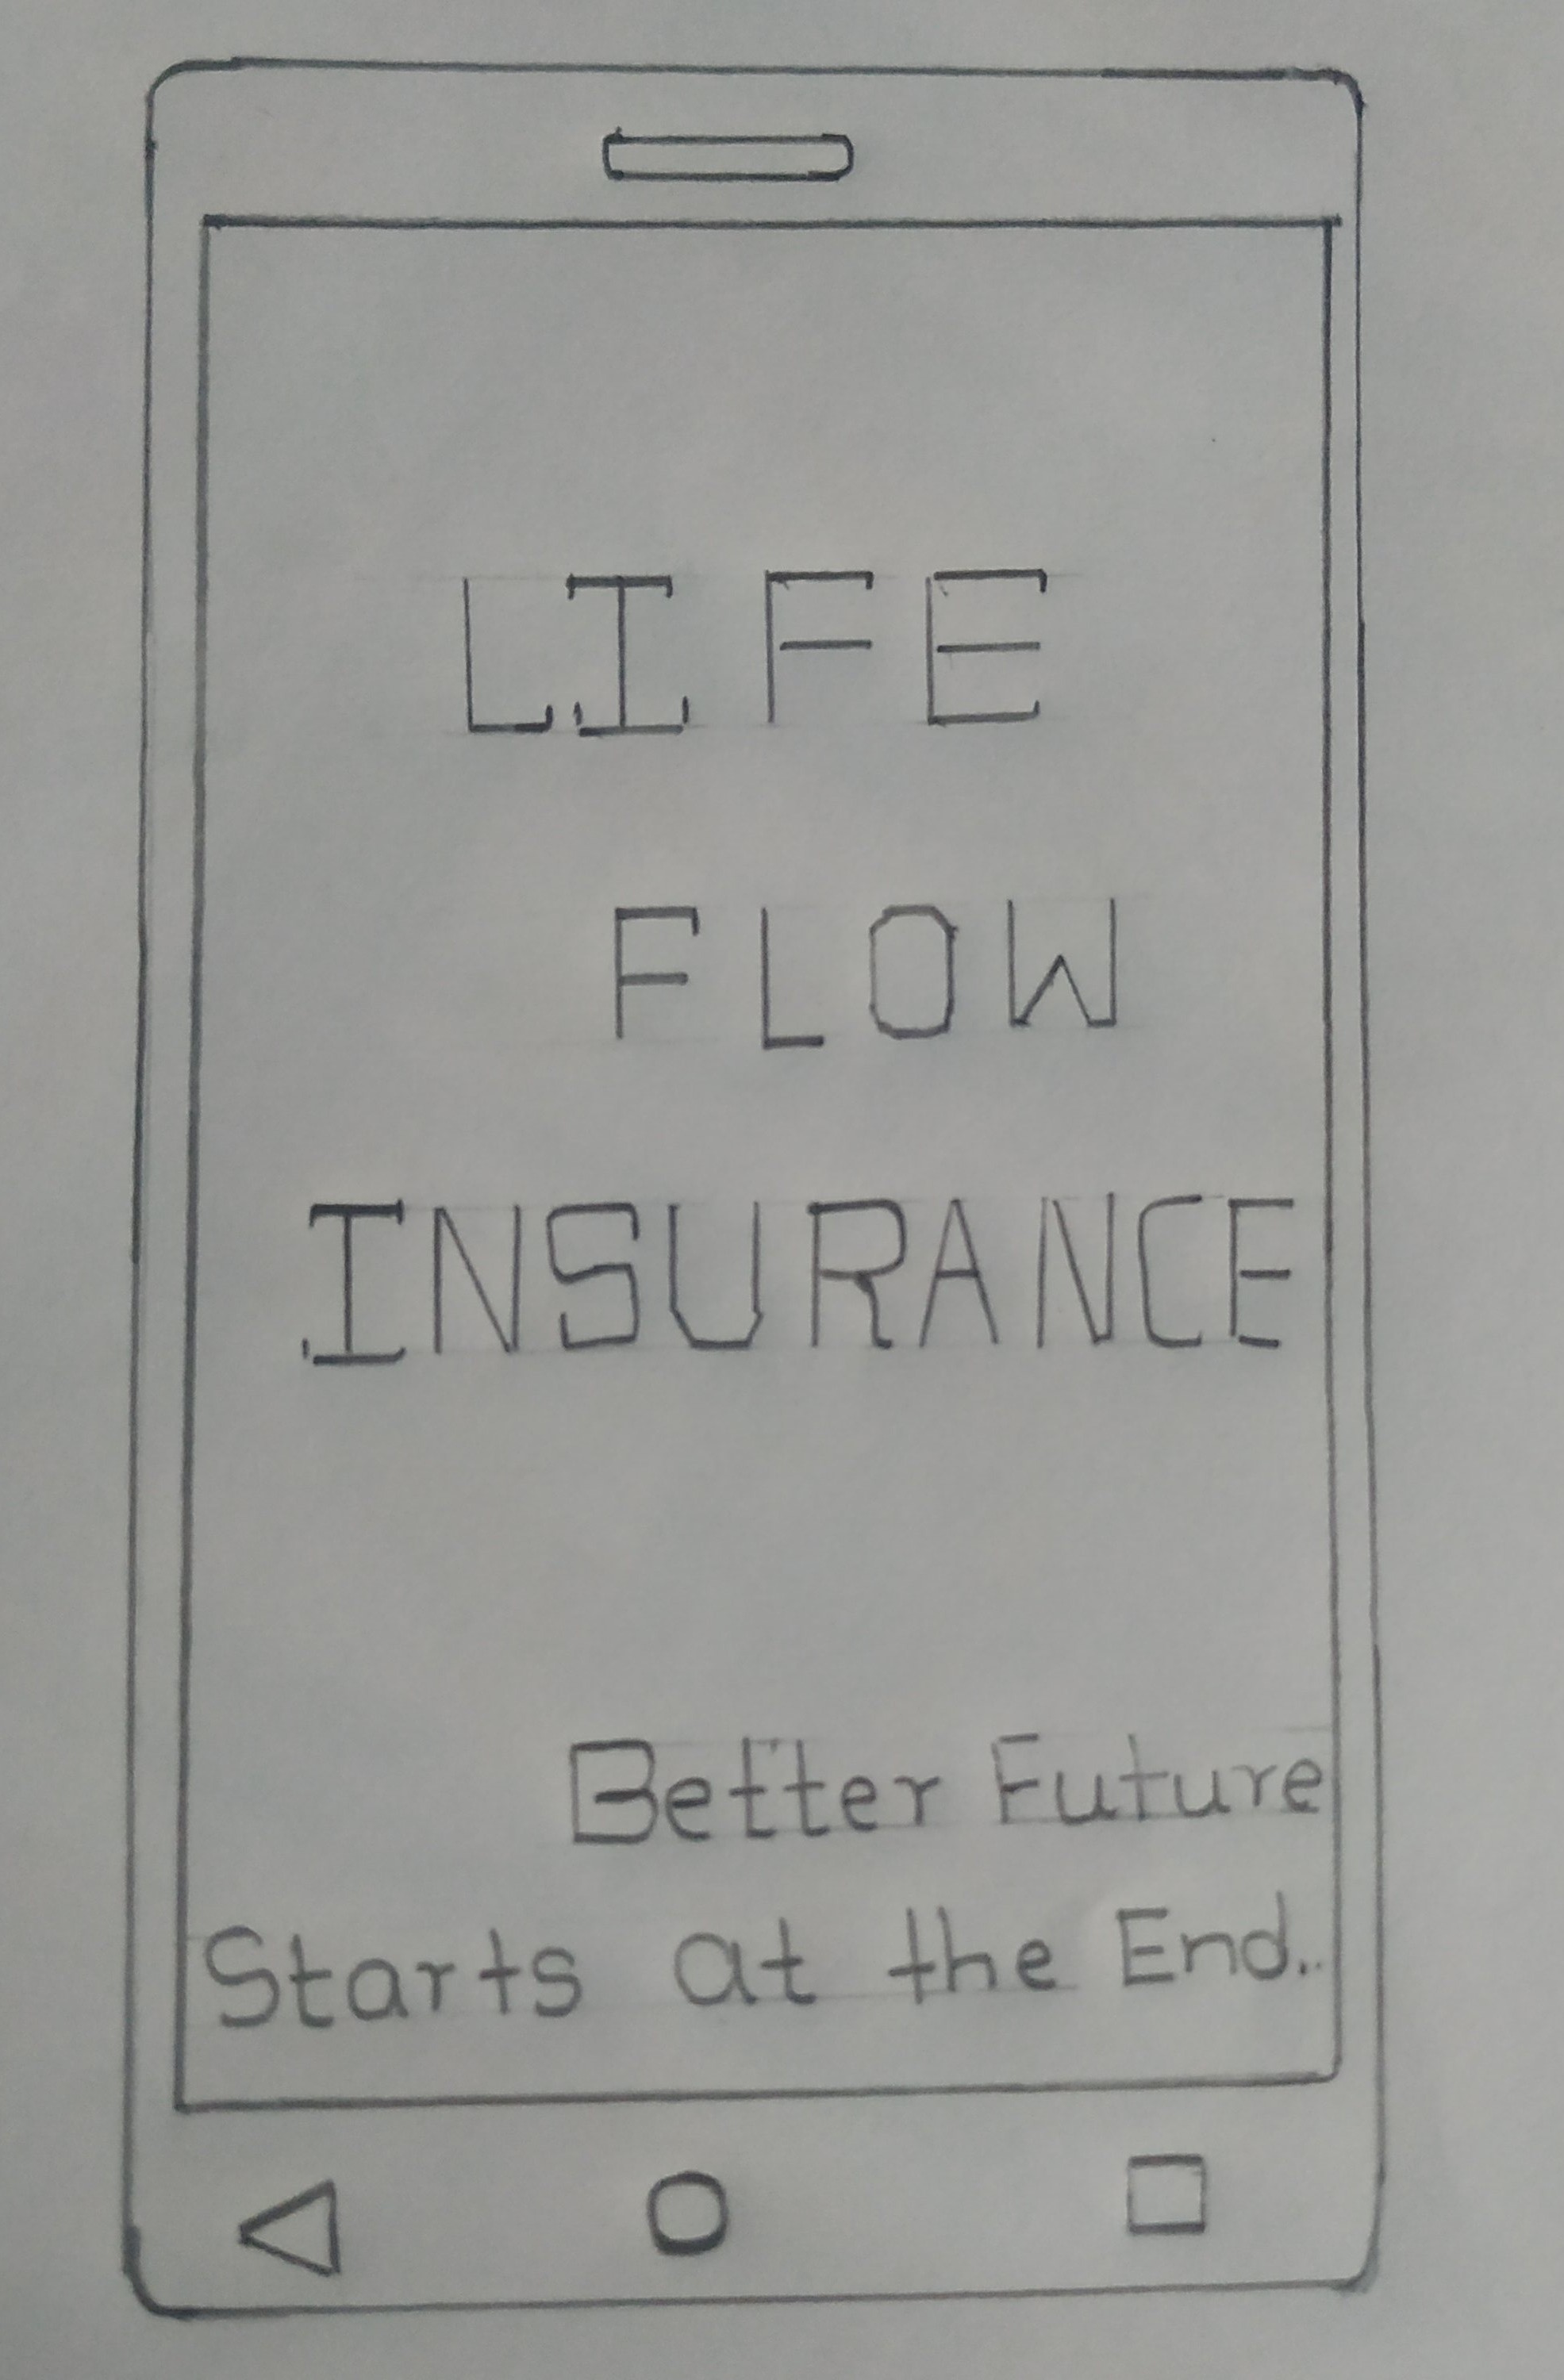 LIFE
FLOW
INSURANCE
Better Future
Starts at the End..